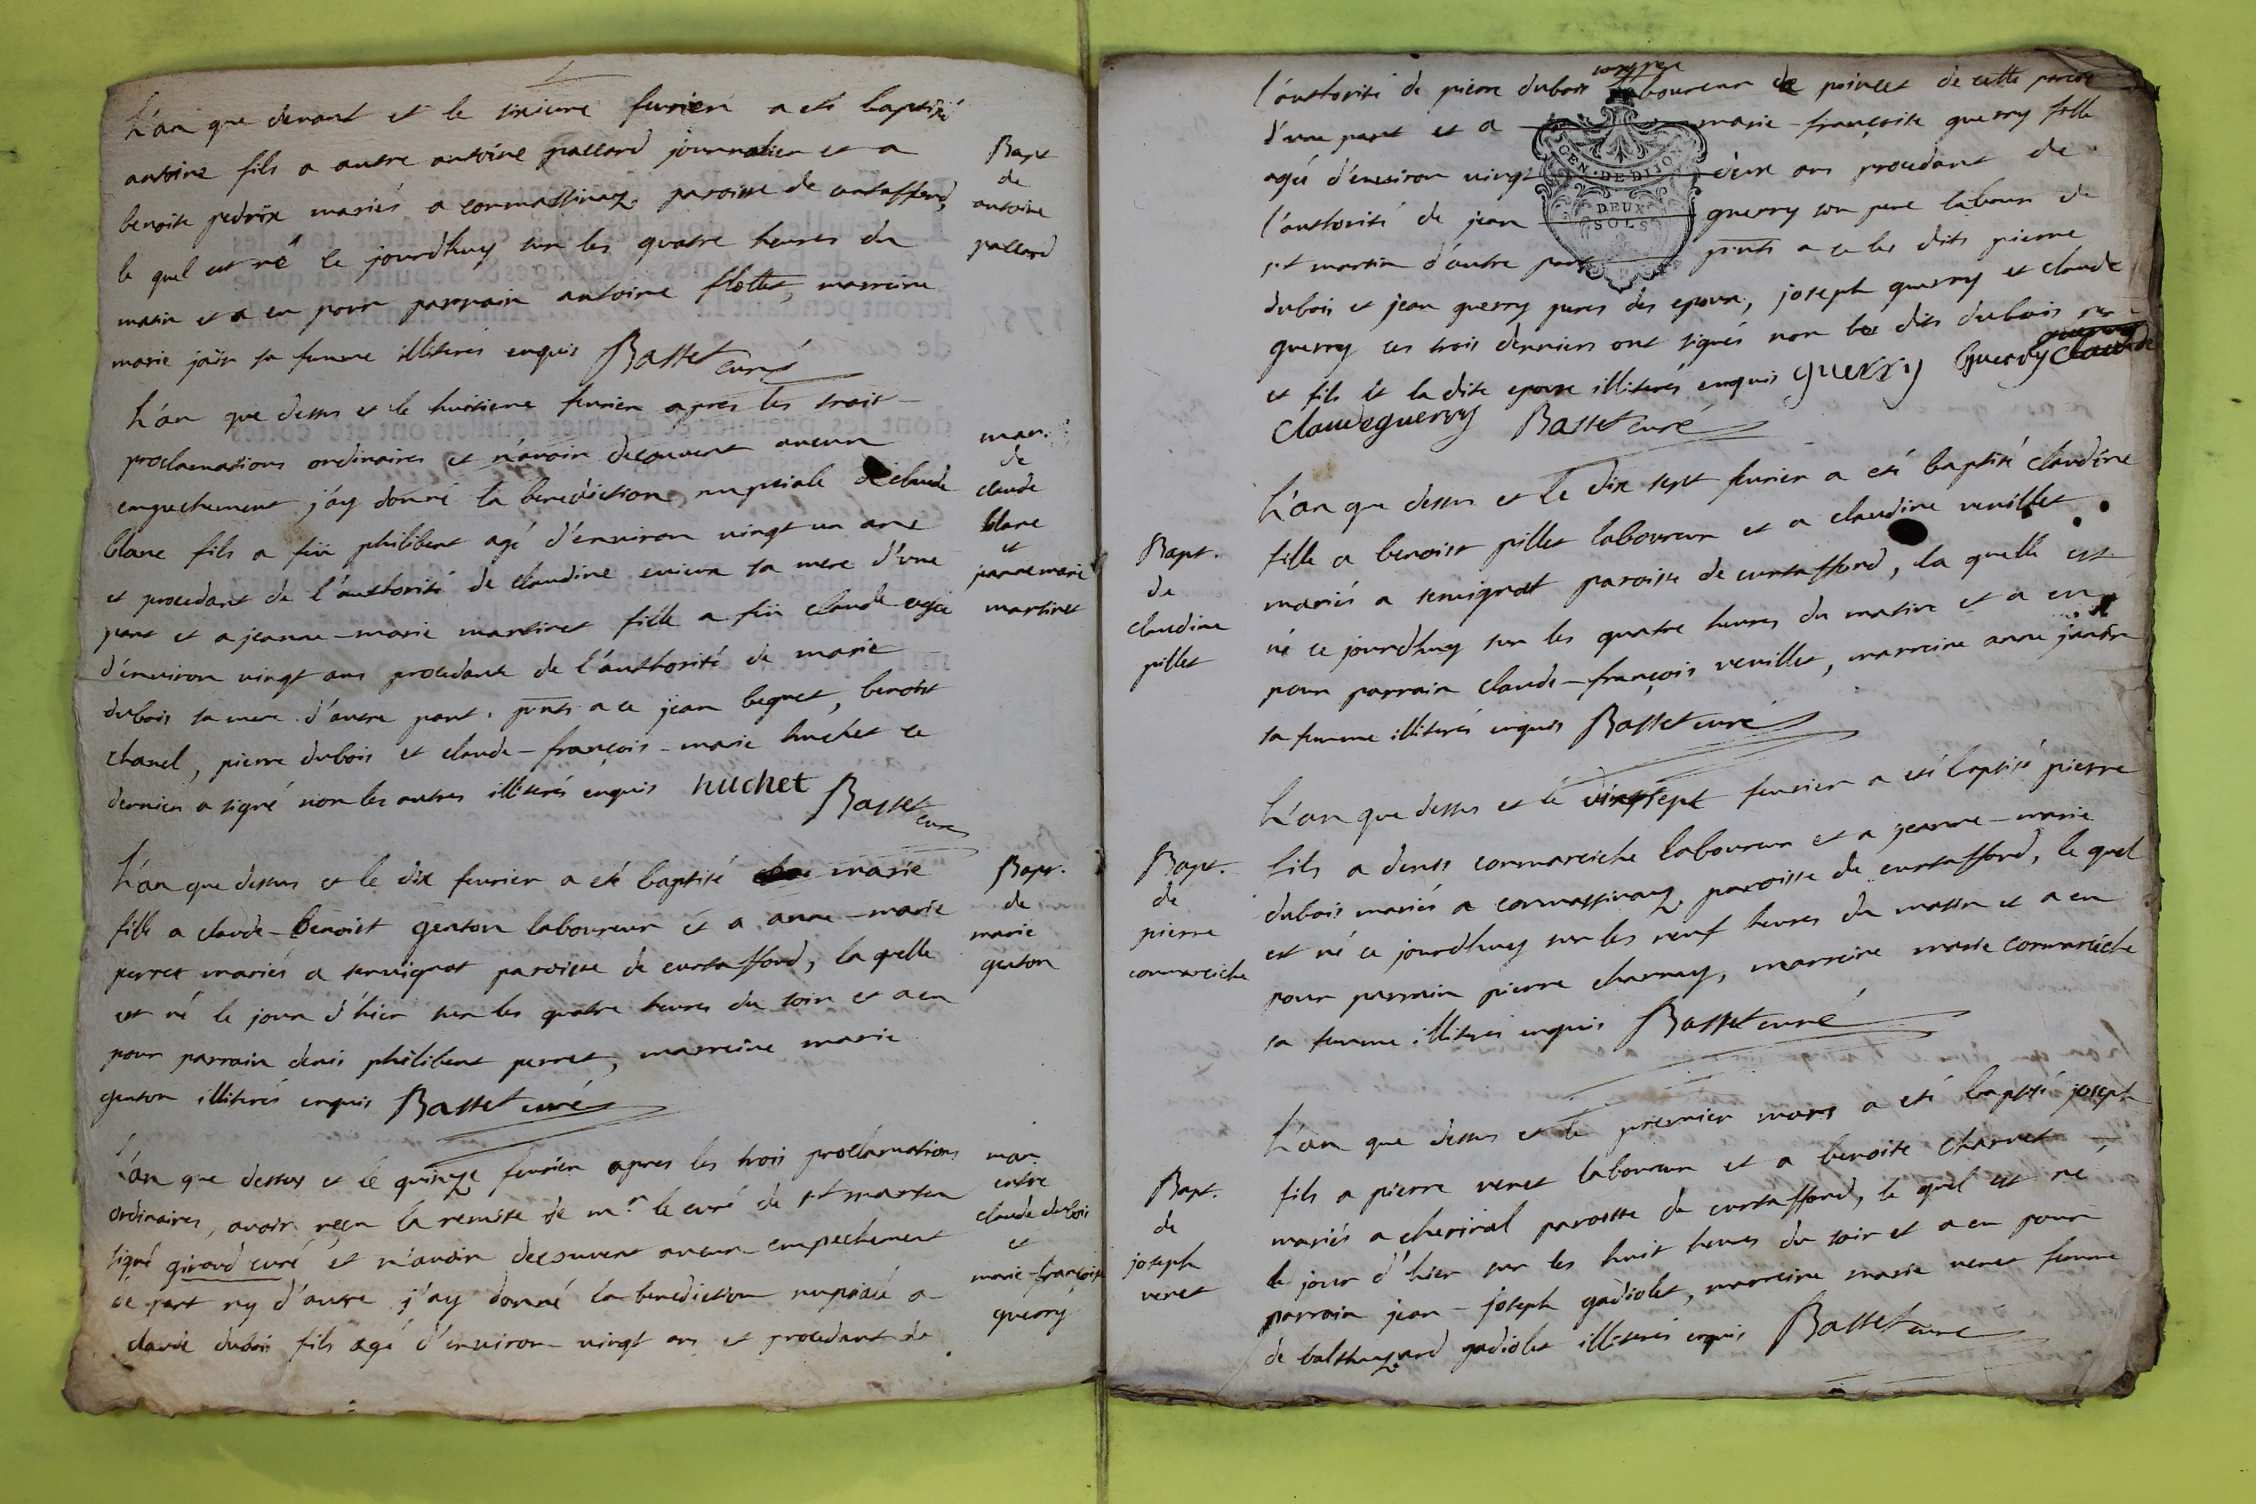 L'an que devant et le sixieme fevrier a eté baptisé
antoine fils a autre antoine paccard journalier et a
benoite pedrix mariés a cormassinaz paroisse de curtafford,
le quel est né le jourdhuy sur les quatre heures du
matin et a eu pour parrain antoine flottet, marreine
marie jaïr sa femme illiterés enquis Basset curé
Bapt
de
antoine
paccard
L'an que dessus et le huitieme fevrier apres les trois
proclamations ordinaires et n'avoir decouvert aucun
empechement j'ay donné la benediction nuptiale a claude
blanc fils a fëu philibert agé d'environ vingt un ans
et procedant de l'authorité de claudine sa mere d'une
part et a jeanne-marie martinet fille a fëu claude agée
d'environ vingt ans procedante de l'authorité de marie
dubois sa mere d'autre part. pnts a ce jean beguet, benoist
chanel, pierre dubois et claude-françois-marie huchet ce
dernier a signé non les autres illiterés enquis huchet Basset
curé
mar.
de
claude
blanc
et
jeannemarie
martinet
L'an que dessus et le dix fevrier a eté baptisé marie
fille a claude-benoist genton laboureur et a anne-marie
perret mariés a servignat paroisse de curtafford, la quelle
est né le jour d'hier sur les quatre heures du soir et a eu
pour parrain denis philibert perret, marreine marie
genton illiterés enquis Basset curé
Bapt.
de
marie
genton
L'an que dessus et le quinze fevrier apres les trois proclamations
ordinaires, avoir reçu la remise de mr le curé de st martin
signé giroud curé et n'avoir decouvert aucun empechement
de part ny d'autre j'ay donné la benediction nuptiale a
claude dubois fils agé d'environ vingt ans et procedant de
mar.
entre
claude dubois
et
marie-françoise
guerry
l'authorité de pierre dubois laboureur de poincet de cette paroisse
d'une part et a marie-françoise guerry fille
agée d'environ vingt deux ans procedant de
l'authorité de jean guerry son pere labour de
st martin d'autre part pnts a ce les dits pierre
GEN. DE DIJON
DEUX
SOLS
dubois et jean guerry peres des epoux, joseph guerry et claude
guerry ces trois derniers ont signés non les dits dubois pere
et fils et la dite epouse illiterés enquis guerry Guerry
claudeguerry Basset curé
L'an que dessus et le dix sept fevrier a eté baptisé claudine
fille a benoist pillet laboureur et a claudine veuillet
mariés a servignat paroisse de curtafford, la quelle est
né ce jourdhuy sur les quatre heures du matin et a eu
pour parrain claude-françois veuillet, marreine anne
sa femme illiterés enquis Basset curé
Bapt.
de
claudine
pillet
L'an que dessus et le vingtsept fevrier a eté baptisé pierre
fils a denis cormareiche laboureur et a jeanne-marie
dubois mariés a cormassinaz paroisse de curtafford, le quel
est né ce jourdhuy sur les neuf heures du matin et a eu
pour parrain pierre charnay, marreine marie cormareiche
sa femme illiterés enquis Basset curé
Bapt.
de
pierre
cormareiche
L'an que dessus et le premier mars a eté baptisé joseph
fils a pierre venet laboureur et a benoite charvet
mariés a cherinal paroisse de curtafford, le quel est né
le jour d'hier sur les huit heures du soir et a eu pour
parrain jean-joseph gadiolet, marreine marie venet femme
de balthazard gadiolet illiterés enquis Basset curé
Bapt.
de
joseph
venet